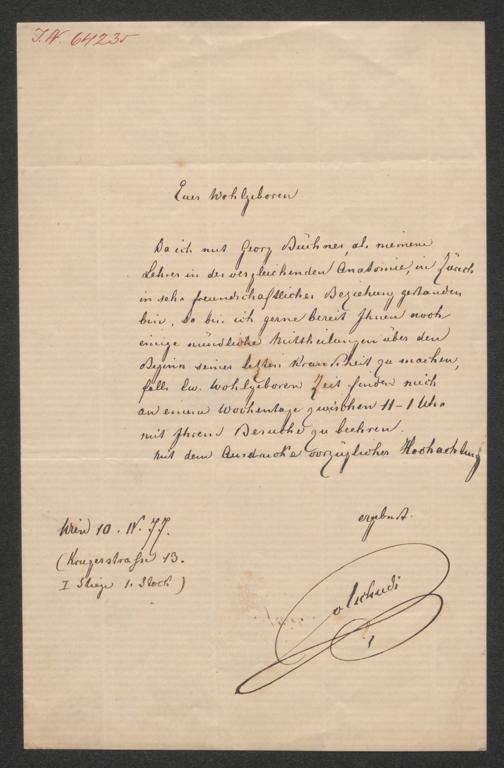 I.N. 64235
Euer Wohlgeboren
Da ich mit Georg Büchner, als meinem
Lehrer in der vergleichenden Anatomie, in Zürich
in sehr freundschaftlicher Beziehung gestanden
bin, so bin ich gerne bereit Ihnen noch
einige mündliche Mittheilungen über den
Beginn seiner letzten Krankheit zu machen,
falls Ew. Wohlgeboren Zeit finden mich
an einem Wochentage zwischen 11–1 Uhr
mit Ihrem Besuche zu beehren.
Mit dem Ausdrucke vorzüglicher Hochachtung
ergebenst.
Wien 10. IV. 77.
(Krugerstrasse 13.
I Stiege 1. Stock)
v Tschudi